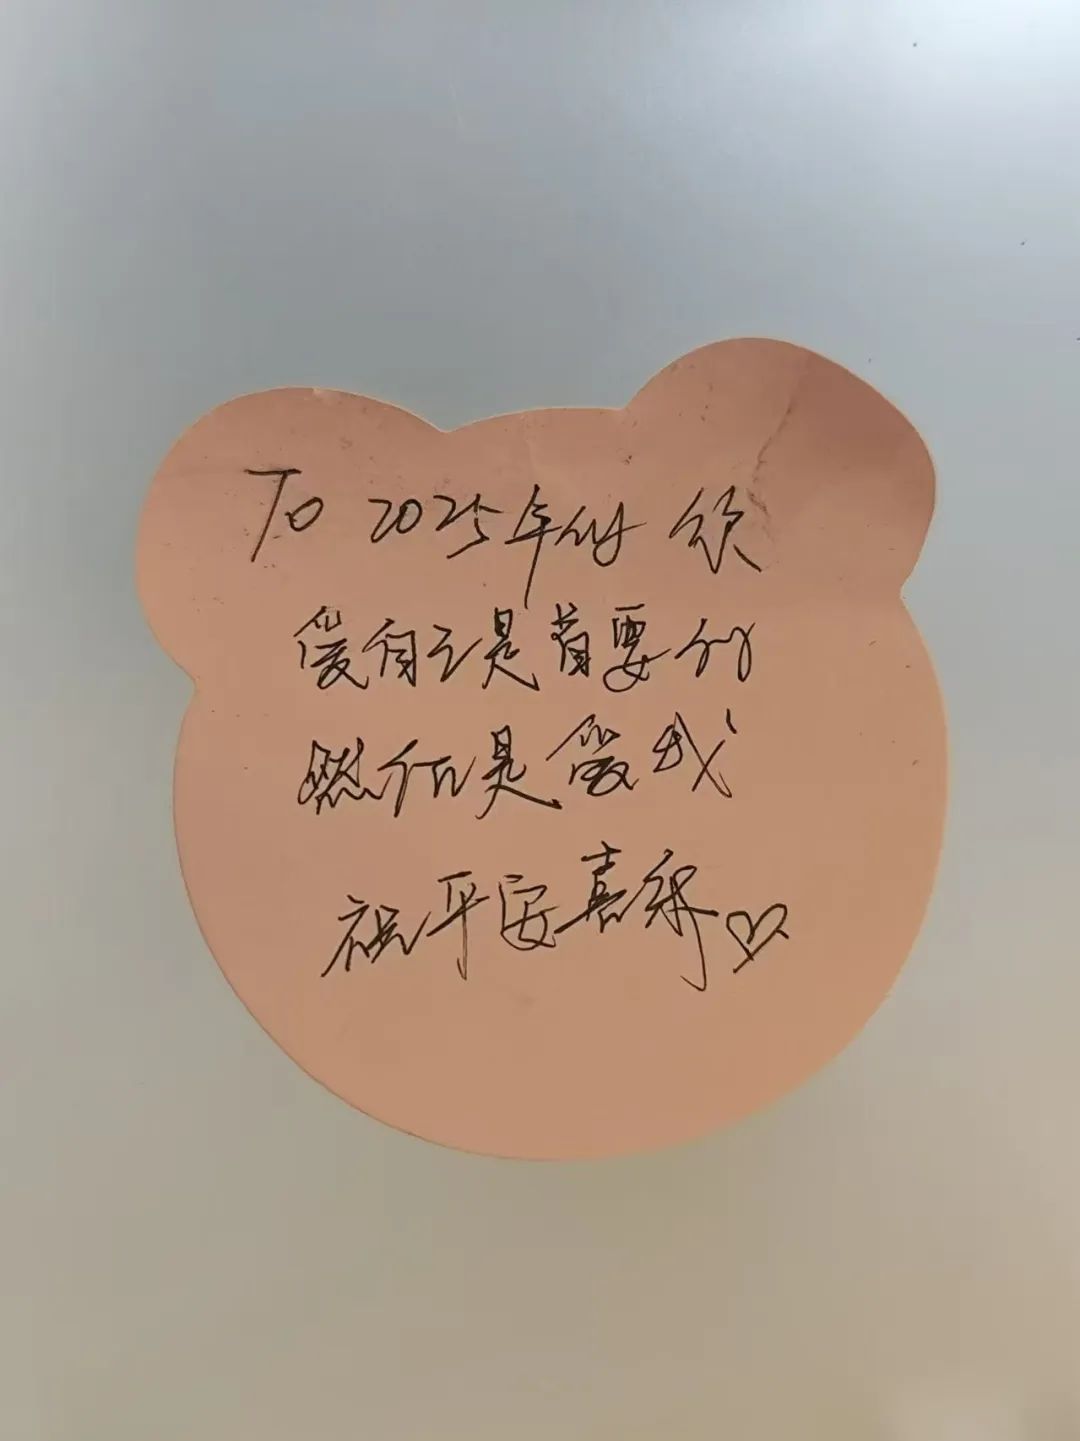 To 2025年的
爱自己是首要的
然后是爱我
祝平安喜乐♡